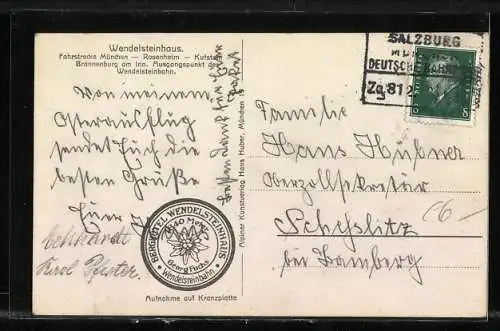 Wendelsteinhaus.
Fahrstrecke München — Rosenheim — Kufstein
Brannenburg am Inn. Ausgangspunkt der
Wendelsteinbahn.
Von meinem
Osterausflug
sendet Euch die
besten Grüße
Euer
Eckhardt
Karl Pfister.
besten Dank für Euer Paket
BERGHOTEL WENDELSTEINHAUS
1740 Meter
Georg Fuchs
Wendelsteinbahn
Aufnahme auf Kranzplatte
Alpiner Kunstverlag Hans Huber, München 19
SALZBURG
MÜ
DEUTSCHE
Zg 81 2
Familie
Hans Hübner
Oberzollsekretär
Scheßlitz
bei Bamberg
6-